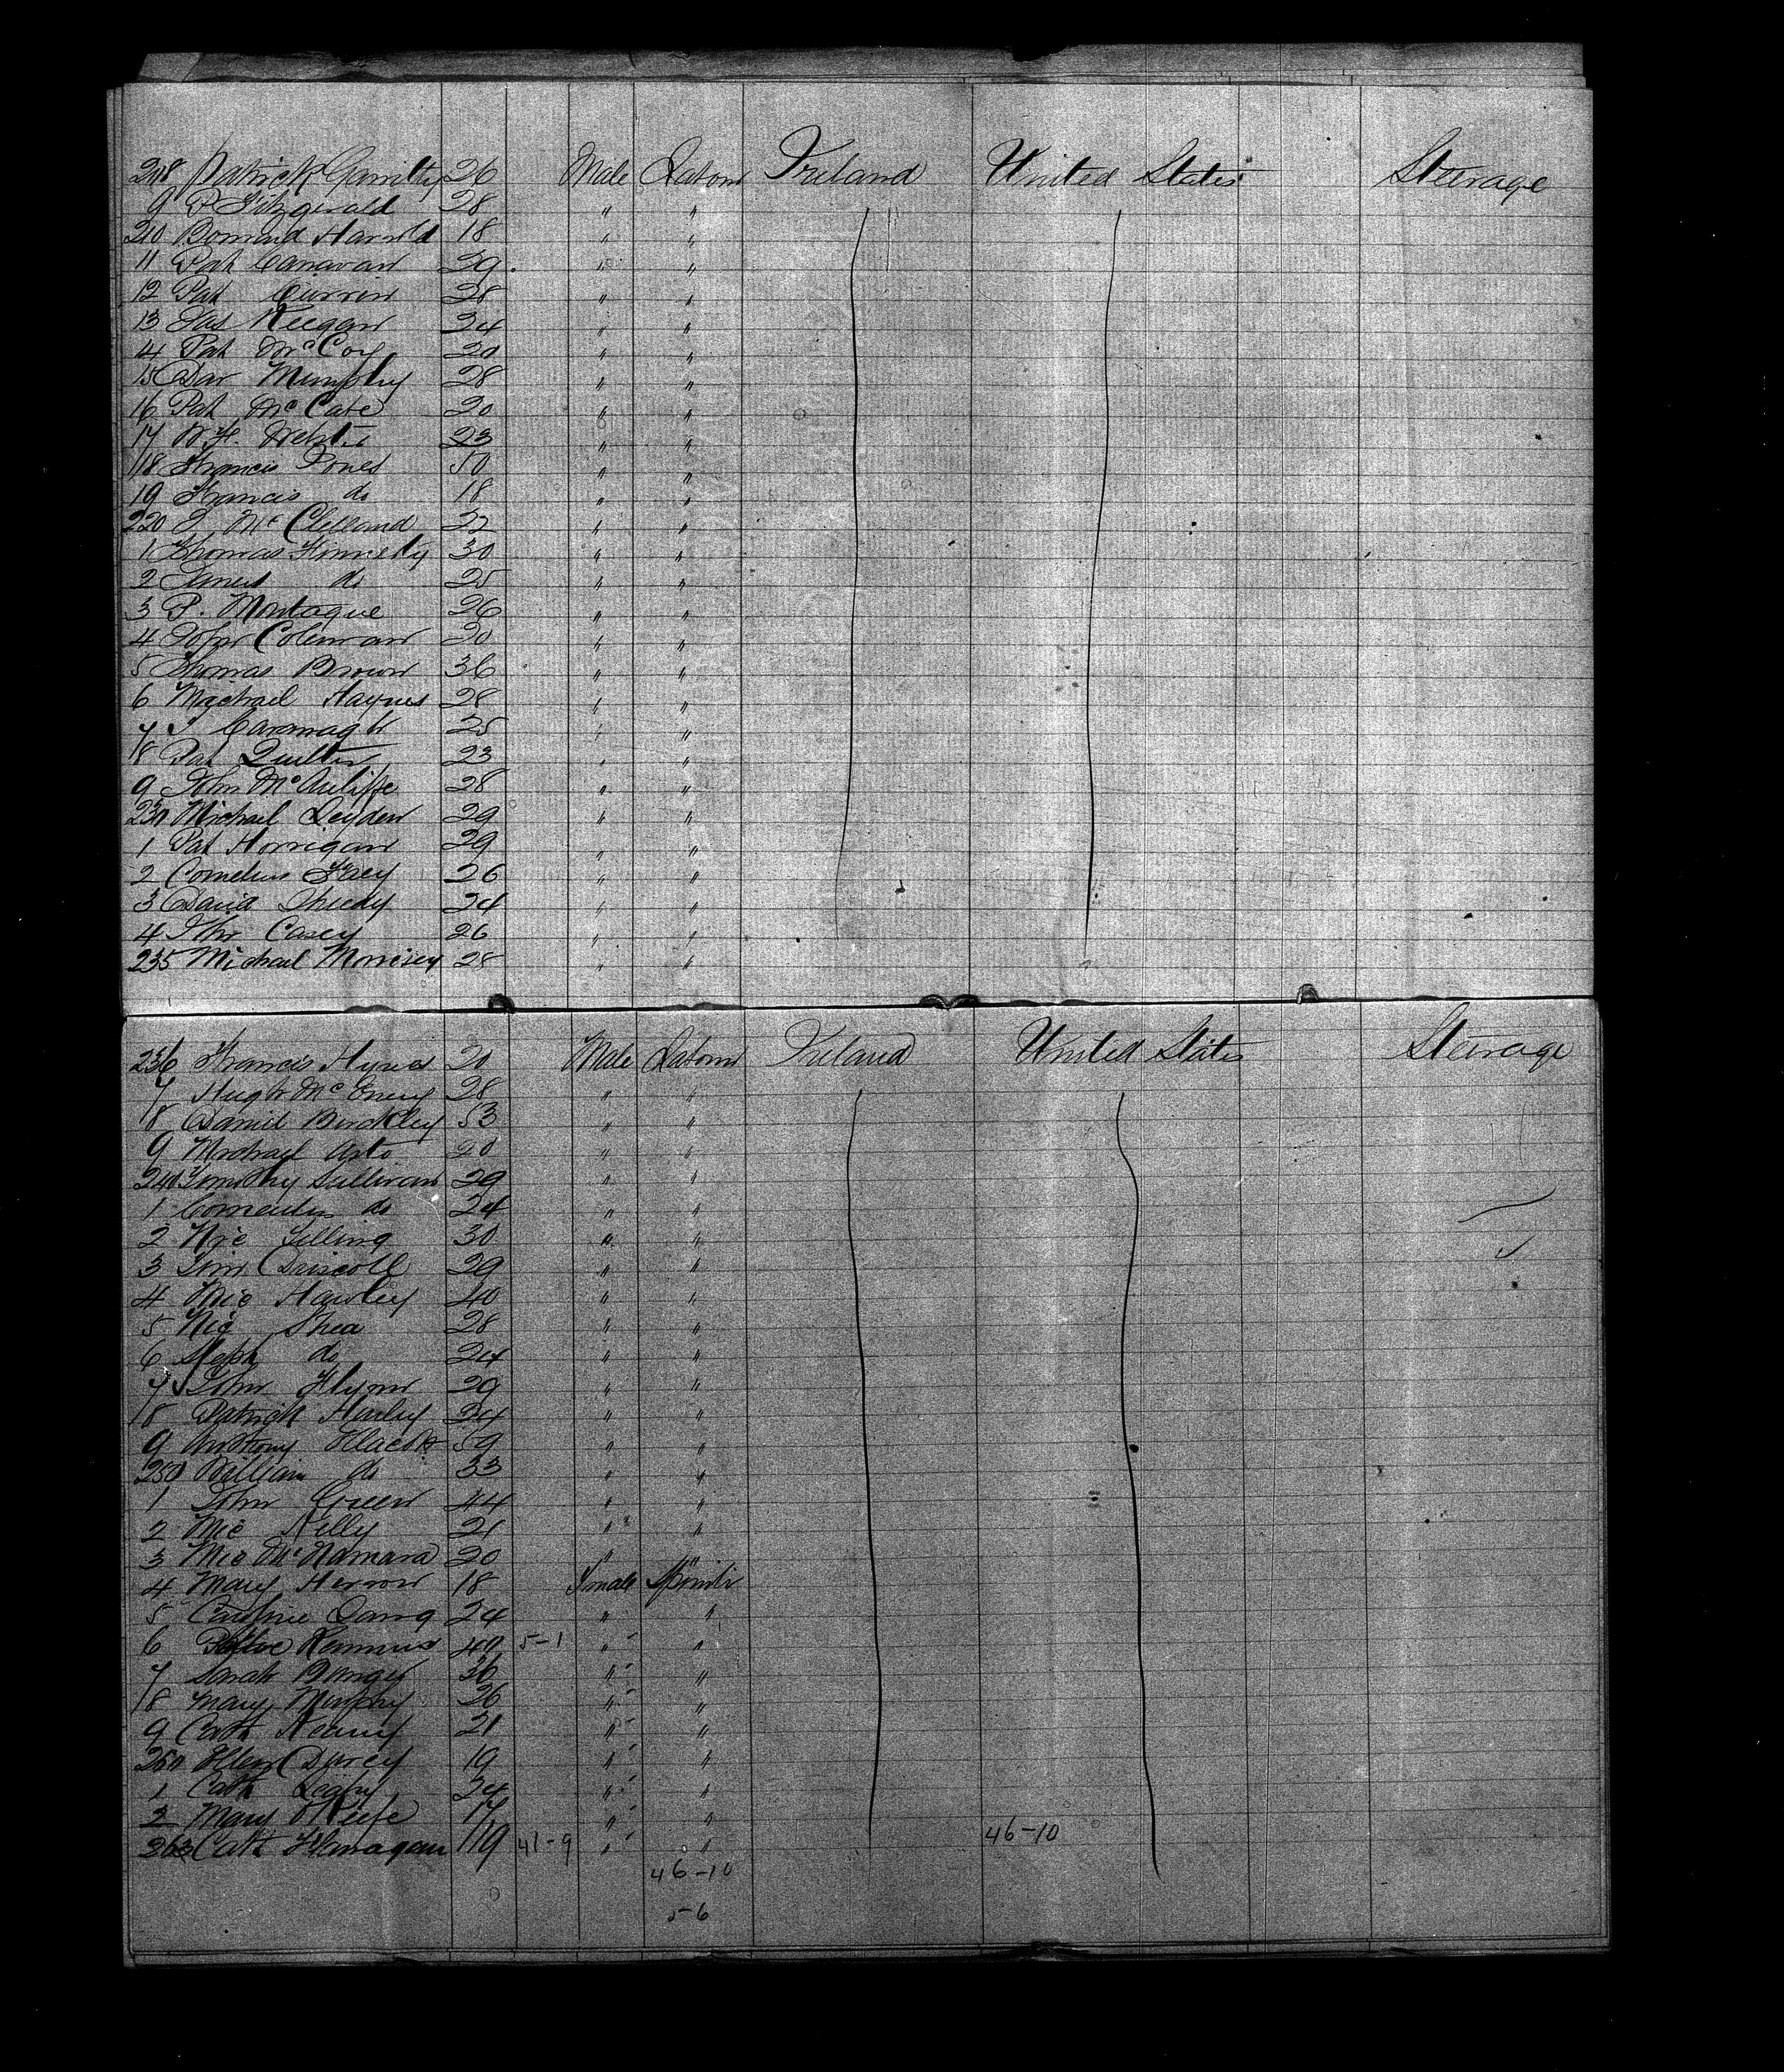 208 Patrick Garrilty 26 Male Labour Ireland United States Steerage
9 P Fitzgerald 28 " "
210 Harold 18 " "
11 Pat Canavan 29 " "
12 Pat Curren 28 " "
13 Jas Keegan 24 " "
14 Pat McCoy 20 " "
15 Dan Murphy 28 " "
16 Pat McCabe 20 " "
17 23 " "
18 Francis Jones 50 " "
19 Francis do 18 " "
220 J McClelland 22 " "
1 Thomas 30 " "
2 James do 25 " "
3 P. Montague 26 " "
4 John Coleman 20 " "
5 Thomas Brown 36 " "
6 Machael Haynes 28 " "
7 J Cavanagh 25 " "
8 Pat Quilter 23 " "
9 John McAuliffe 28 " "
230 Michael Leyden 29 " "
1 Pat Horrigan 29 " "
2 Cornelius 26 " "
3 David Sheedy 24 " "
4 Casey 26 " "
235 Michael Morrisey 28 " "
236 Francis Hynes 20 Male Labour Ireland United States Steerage
7 Hugh McEnery 28 " "
8 Daniel Buckley 53 " "
9 Michael 20 " "
240 Timothy Sullivan 29 " "
1 Cornelius do 24 " "
2 30 " "
3 Tim Driscoll 29 " "
4 Mic Hawley 40 " "
5 Mic Shea 28 " "
6 Steph do 24 " "
7 John Flynn 29 " "
8 Patrick Hurley 24 " "
9 Anthony 59 " "
250 William do 33 " "
1 John Green 44 " "
2 Mic Kelly 21 " "
3 Mic McNamara 20 " "
4 Mary 18 Female
5 Caroline 24 " "
6 40 5-1 " "
7 Sarah 36 " "
8 Mary Murphy 26 " "
9 Cath 21 " "
260 Ellen Darcy 19 " "
1 Cath Leahy 24 " "
2 Mary OKeefe 17 " "
263 Cath Flanagan 19 41-9 " " 46-10
46-10
5-6